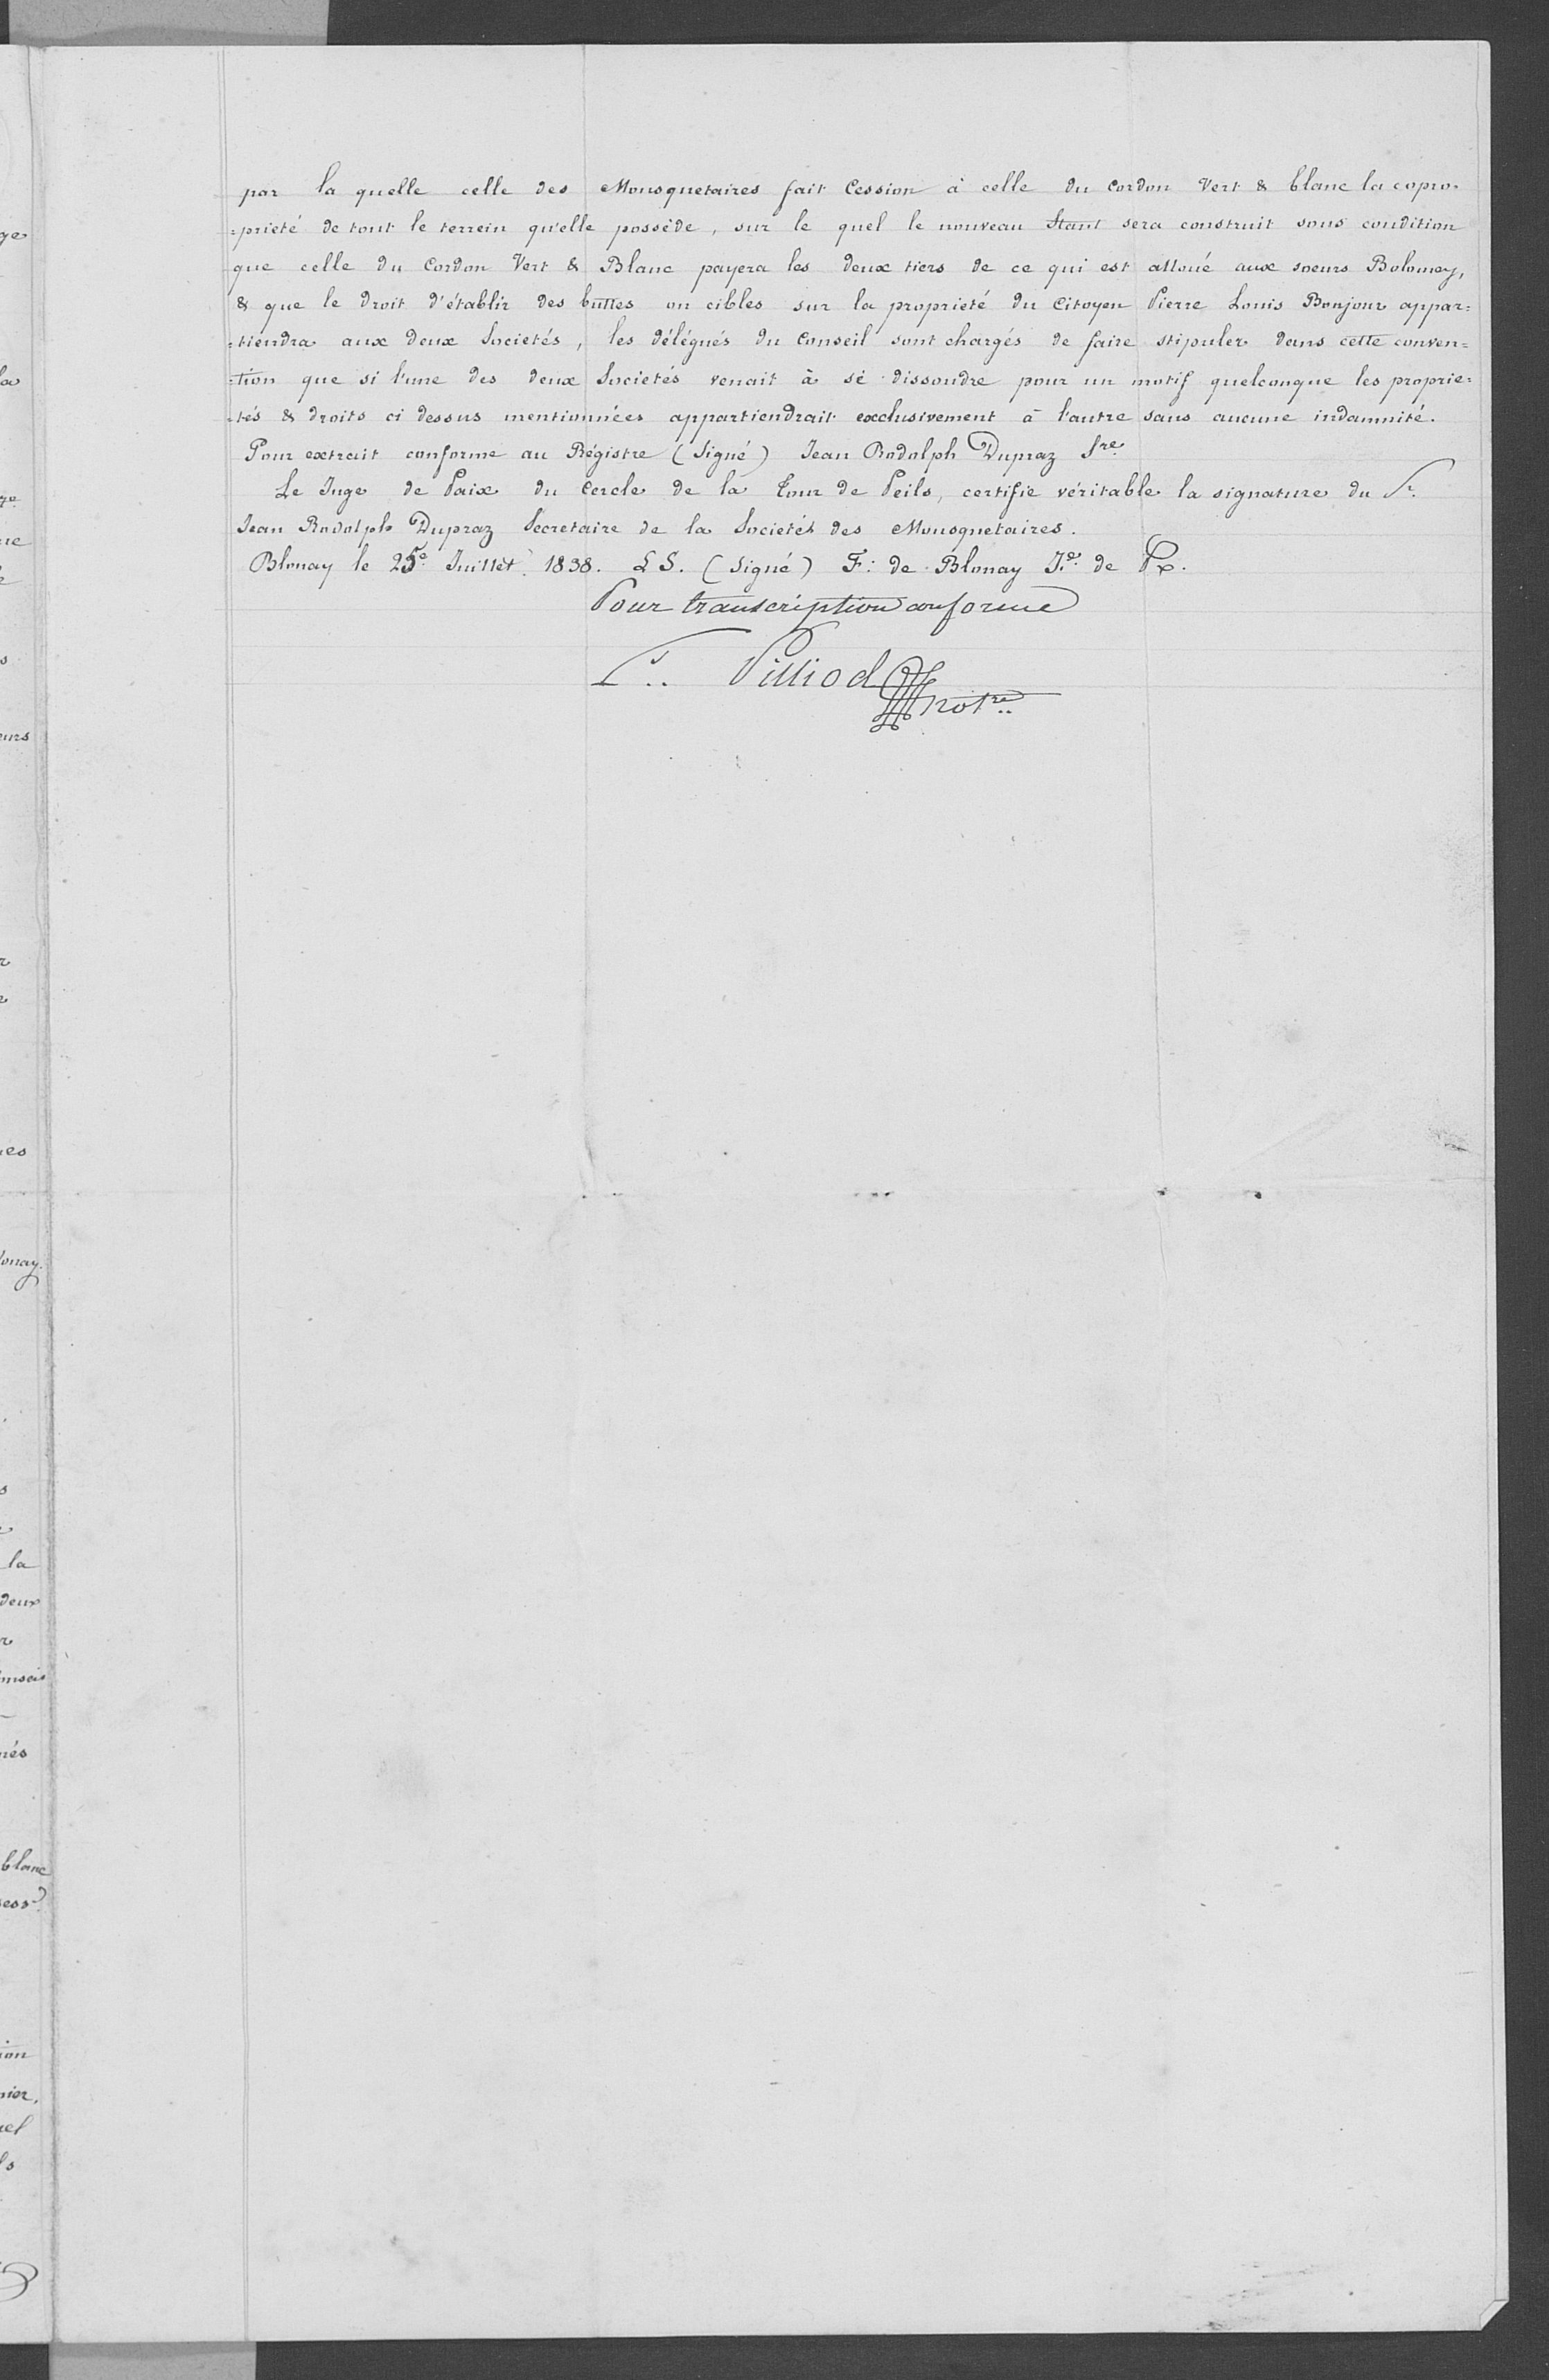 par la quelle celle des Mousquetaires fait Cession à celle du Cordon Vert & blanc la copro-
=prieté de tout le terrein qu'elle possède, sur le quel le nouveau Stant sera construit sous condition
que celle du Cordon Vert & Blanc payera les deux tiers de ce qui est alloué aux soeurs Bolomey,
& que le droit d'établir des buttes ou cibles sur la proprieté du Citoyen Pierre Louis Bonjour appar=
=tiendra aux deux Societés, les délégués du Conseil sont chargés de faire stipuler dans cette conven=
=tion que si l'une des deux Societés venait à sé dissoudre pour un motif quelconque les proprie=
=tés & droits ci dessus mentionnées appartiendrait exclusivement à l'autre sans aucune indamnité.
Pour extrait conforme au Régistre (Signé) Jean Rodolph Dupraz Sre
Le Juge de Paix du Cercle de la Tour de Peils, certifie véritable la signature du Sr.
Jean Rodolph Dupraz Sécretaire de la Societés des Mousquetaires.
Blonay le 25e Juillet 1838. L S. (Signé) F: de Blonay Je de Px.
Pour transcription conforme
Pilliod
notre